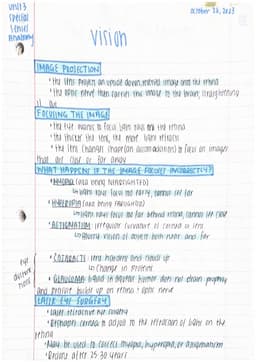 unit 3
special
senses
Anatomy
October 26, 2023
Vision
IMAGE PROJECTION
• the lens projects an upside down, inverted image onto the retina
• the optic nerve then carries this image to the brain, straightening
it out
FOCUSING THE IMAGE
• the eye wants to focus light rays on the retina
• the thicker the lens, the more light refracts
• the lens changes shape (an accommodation) to focus on images
that are close or far away
WHAT HAPPENS IF THE IMAGE FOCUSES INCORRECTLY?
• MYOPIA (aka being NEARSIGHTED)
↳ light rays focus too early, cannot see far
• HYPEROPIA (aka being FARSIGHTED)
↳ light rays focus too far behind retina, cannot see close
• ASTIGMATISM: irregular curvature of cornea or lens
↳ blurry vision of objects both near and far
eye
• CATARACTS: lens hardens and clouds up
↳ change in proteins
• GLAUCOMA: liquid in aqueous humor does not drain properly
and pressure builds up on retina + optic nerve
LASER EYE SURGERY
• laser refractive eye surgery
• Reshapes cornea to adjust to the refraction of light on the
retina
• may be used to correct myopia, hyperopia, or astigmatism
after 25-30 years